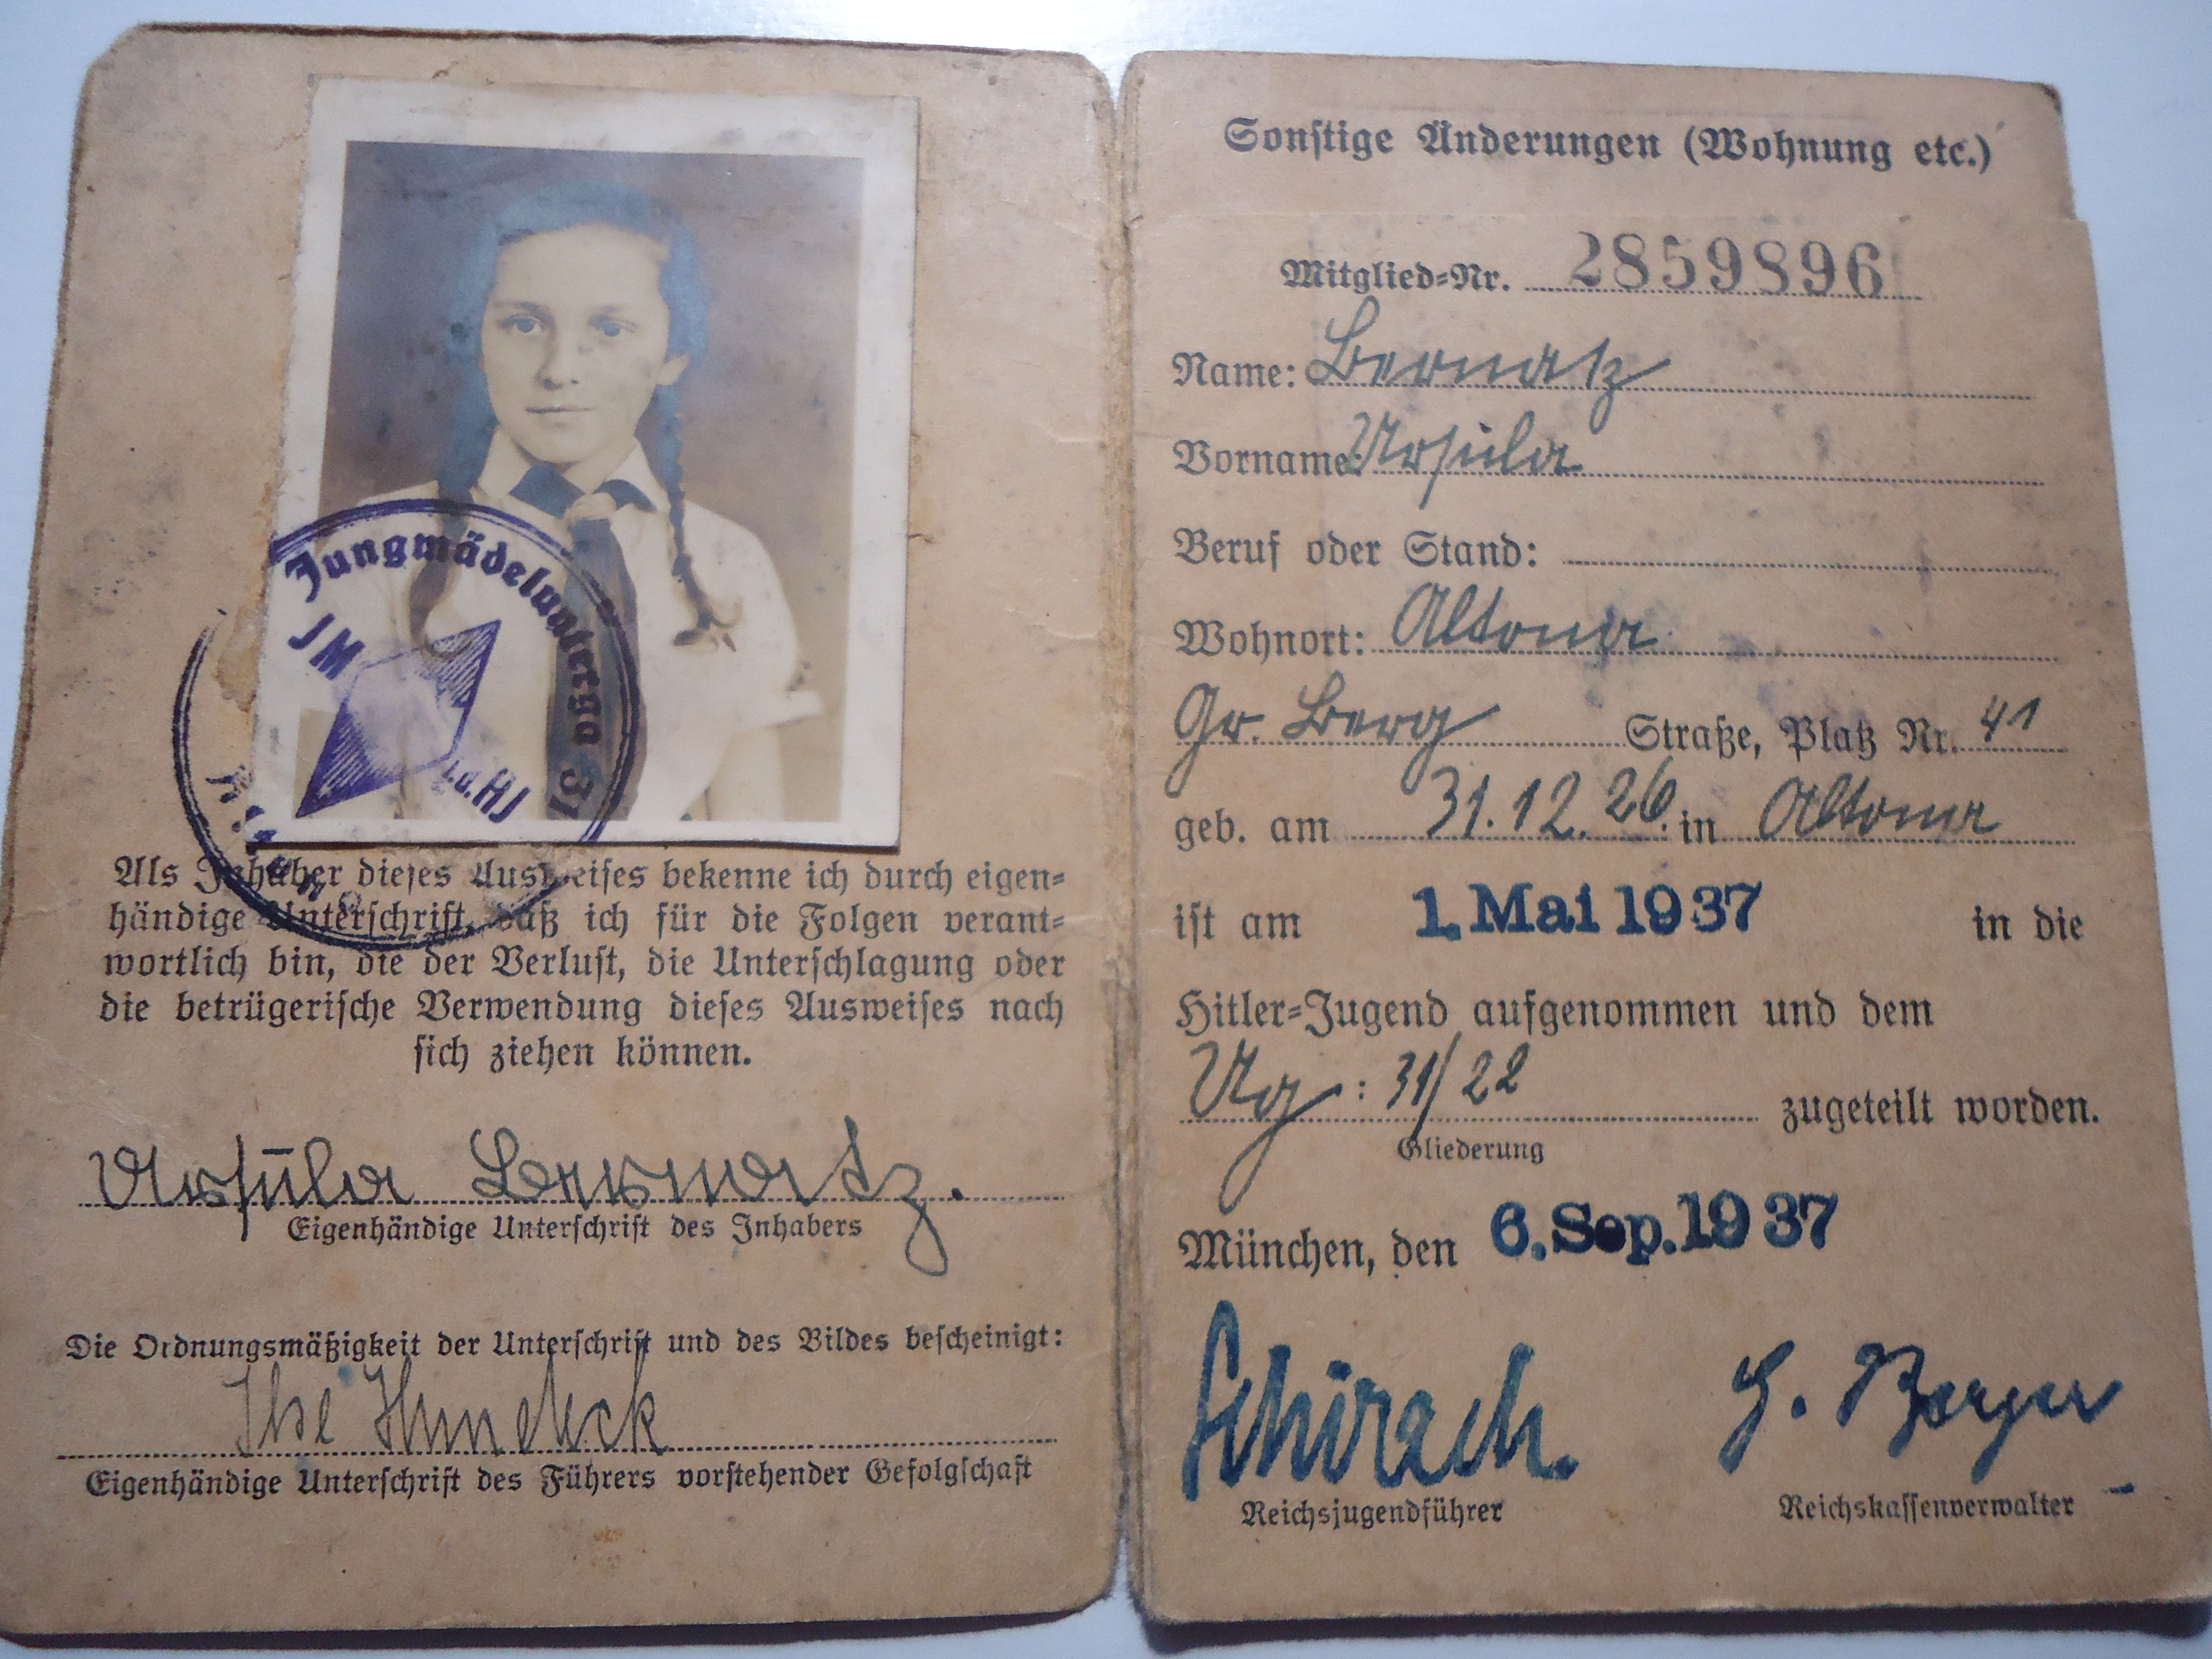 Jungmädeluntergau 31
JM
i.d.HJ
Als Inhaber dieses Ausweises bekenne ich durch eigen=
händige Unterschrift, daß ich für die Folgen verant=
wortlich bin, die der Verlust, die Unterschlagung oder
die betrügerische Verwendung dieses Ausweises nach
sich ziehen können.
Ursula Bernatz.
Eigenhändige Unterschrift des Inhabers
Die Ordnungsmäßigkeit der Unterschrift und des Bildes bescheinigt:
Ilse
Eigenhändige Unterschrift des Führers vorstehender Gefolgschaft
Sonstige Änderungen (Wohnung etc.)
Mitglied=Nr. 2859896
Name: Bernatz
Vorname: Ursula
Beruf oder Stand:
Wohnort: Altona
Gr. Berg Straße, Platz Nr. 41
geb. am 31.12.26. in Altona
ist am 1. Mai 1937 in die
Hitler=Jugend aufgenommen und dem
Ug: 31/22 zugeteilt worden.
Gliederung
München, den 6. Sep. 1937
Schirach. G. Berger
Reichsjugendführer Reichskassenverwalter